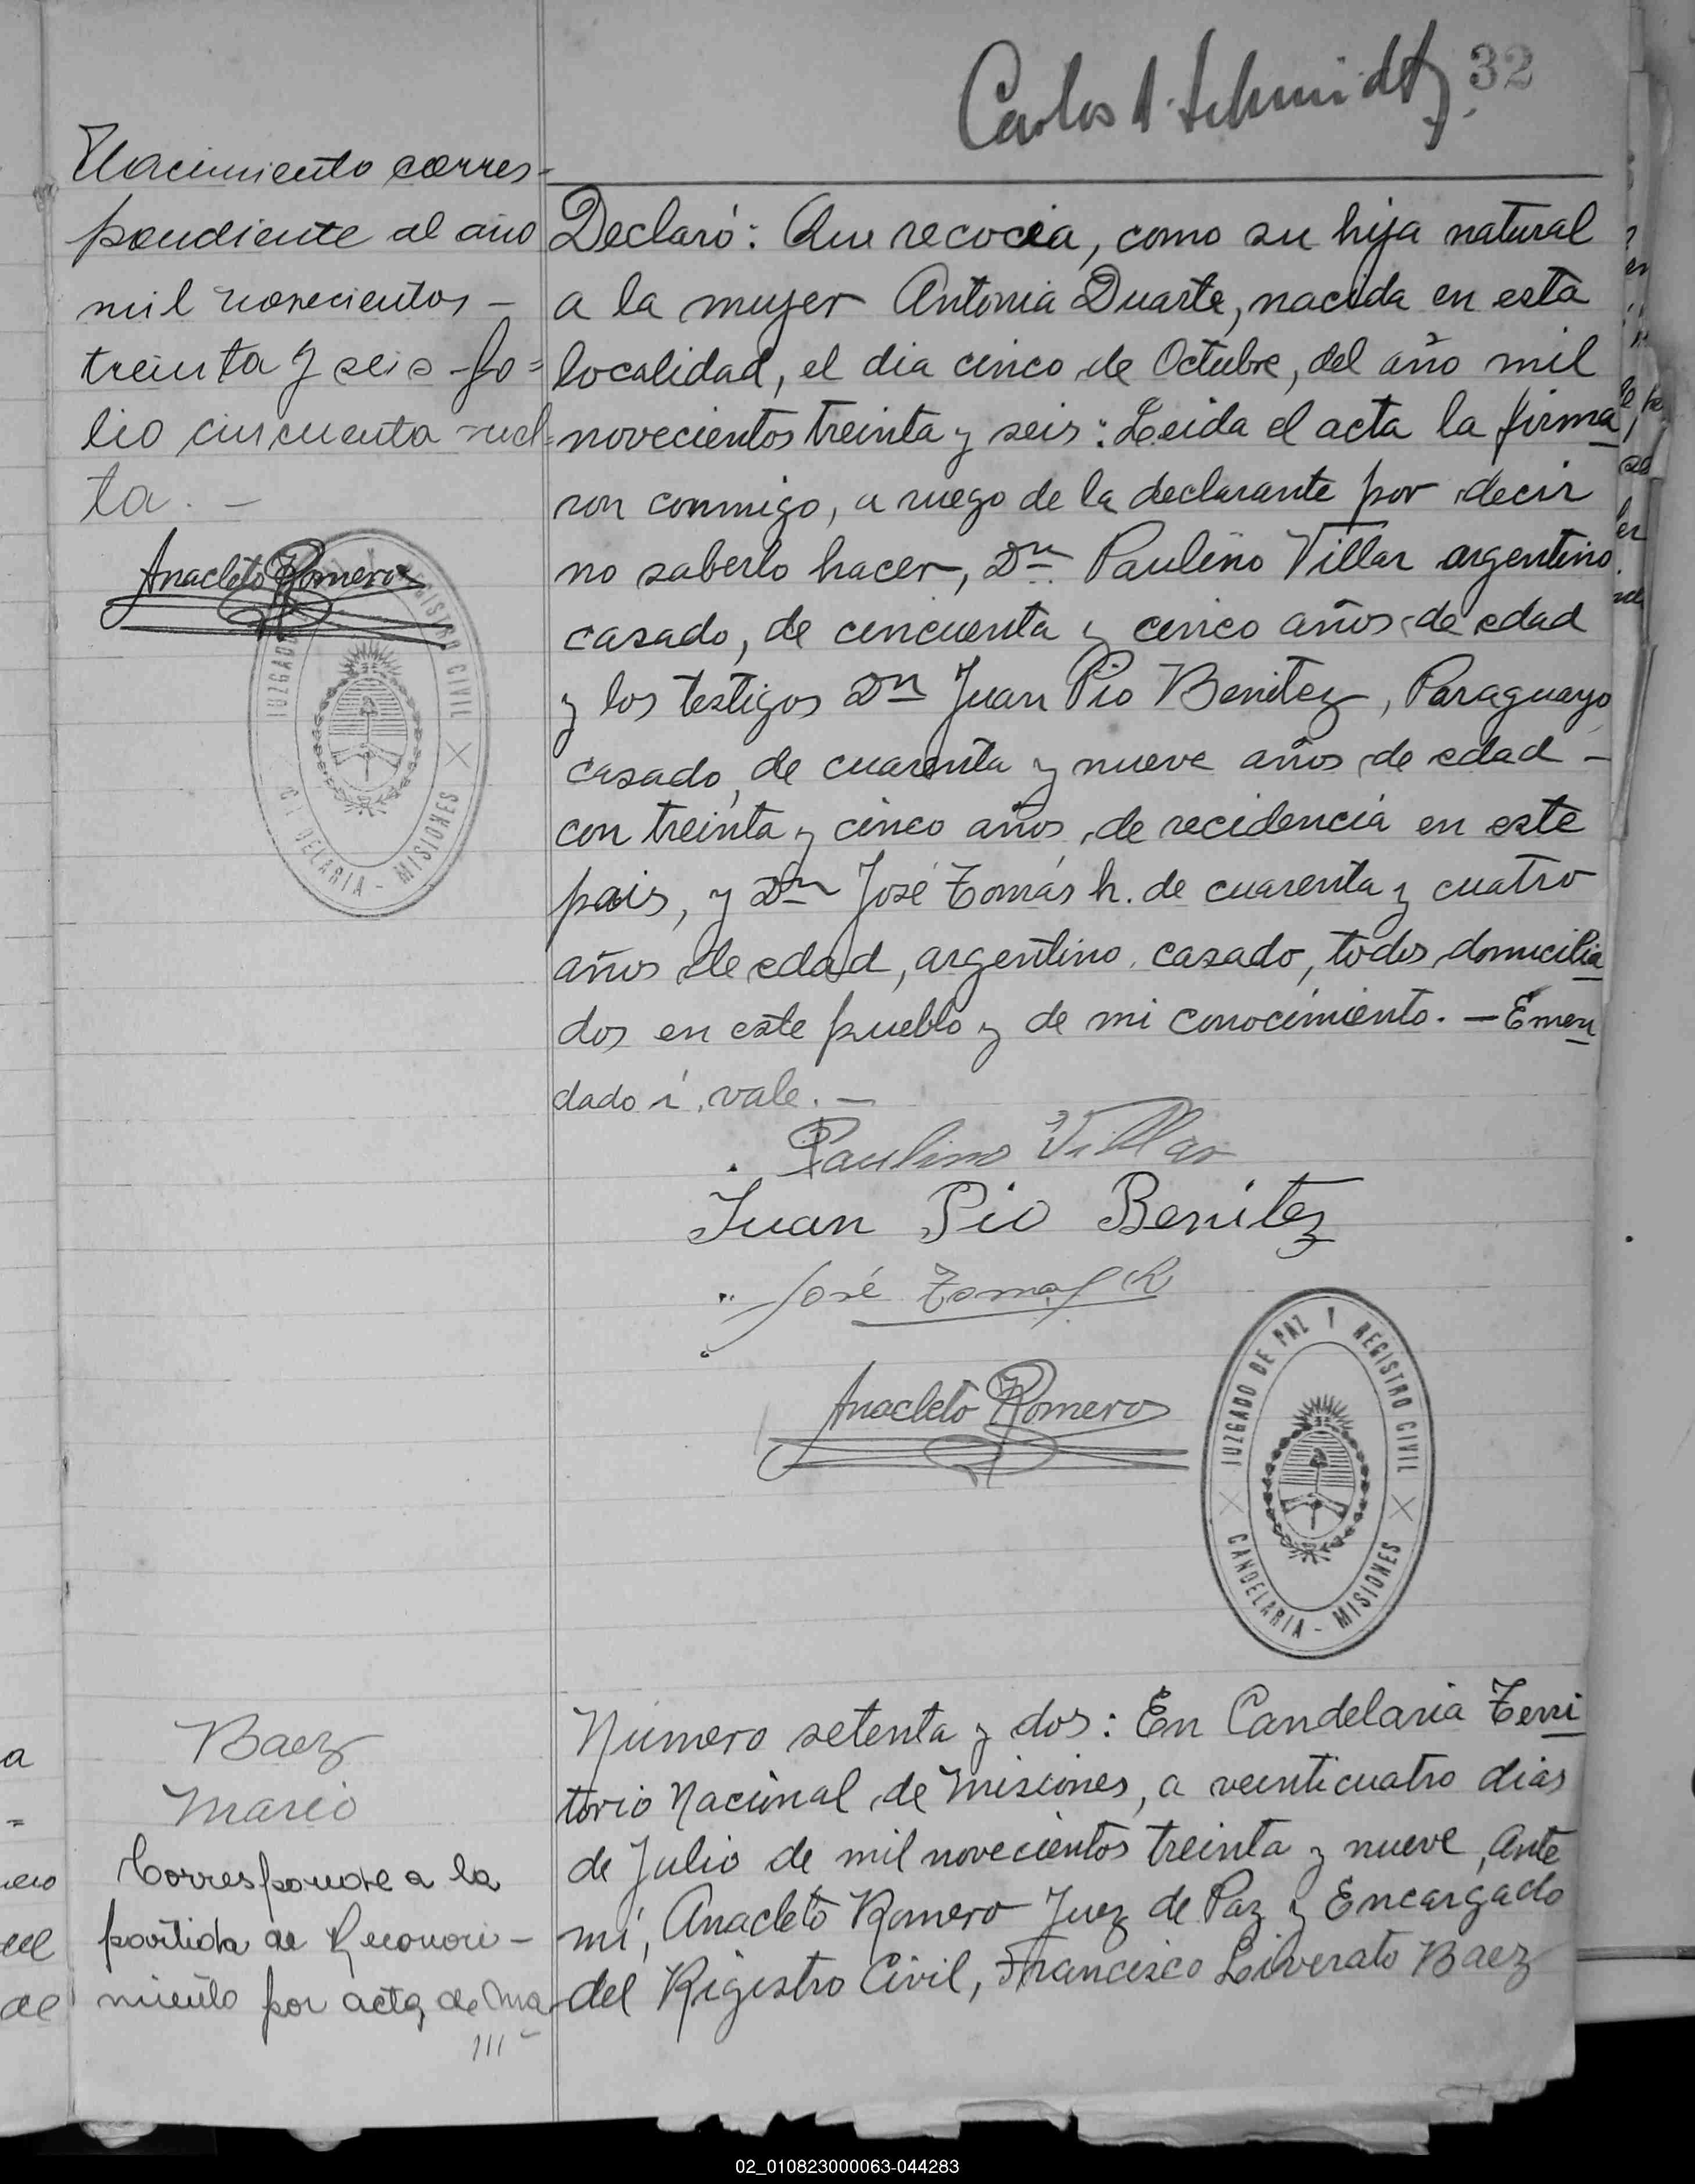 Carlos A. Schmidt
32
Nacimiento corres-
pondiente al año
mil novecientos -
treinta y seis fo=
lio cincuenta vuel=
ta. -
Anacleto Romero
JUZGADO REGISTRO CIVIL
CANDELARIA - MISIONES
Declaró: Que recocía, como su hija natural
a la mujer Antonia Duarte, nacida en esta
localidad, el dia cinco de Octubre, del año mil
novecientos treinta y seis: Leida el acta la firma
ron conmigo, a ruego de la declarante por decir
no saberlo hacer, Dn Paulino Villar argentino.
casado, de cincuenta y cinco años de edad
y los testigos Dn Juan Pio Benitez, Paraguayo
casado, de cuarenta y nueve años de edad -
con treinta y cinco años de recidencia en este
pais, y Dn José Tomás h. de cuarenta y cuatro
años de edad, argentino, casado, todos domicilia
dos en este pueblo y de mi conocimiento. - Emen
dado í, vale. -
Paulino Villar
Juan Pio Benitez
José Tomas h
Anacleto Romero
JUZGADO DE PAZ Y REGISTRO CIVIL
CANDELARIA - MISIONES
Baez
Mario
Corresponde a la
partida de Reconoci-
miento por acta de Ma
Número setenta y dos: En Candelaria Terri
torio Nacional de Misiones, a veinticuatro dias
de Julio de mil novecientos treinta y nueve, ante
mí, Anacleto Romero Juez de Paz y Encargado
del Rigistro Civil, Francisco Liverato Baez
02_010823000063-044283